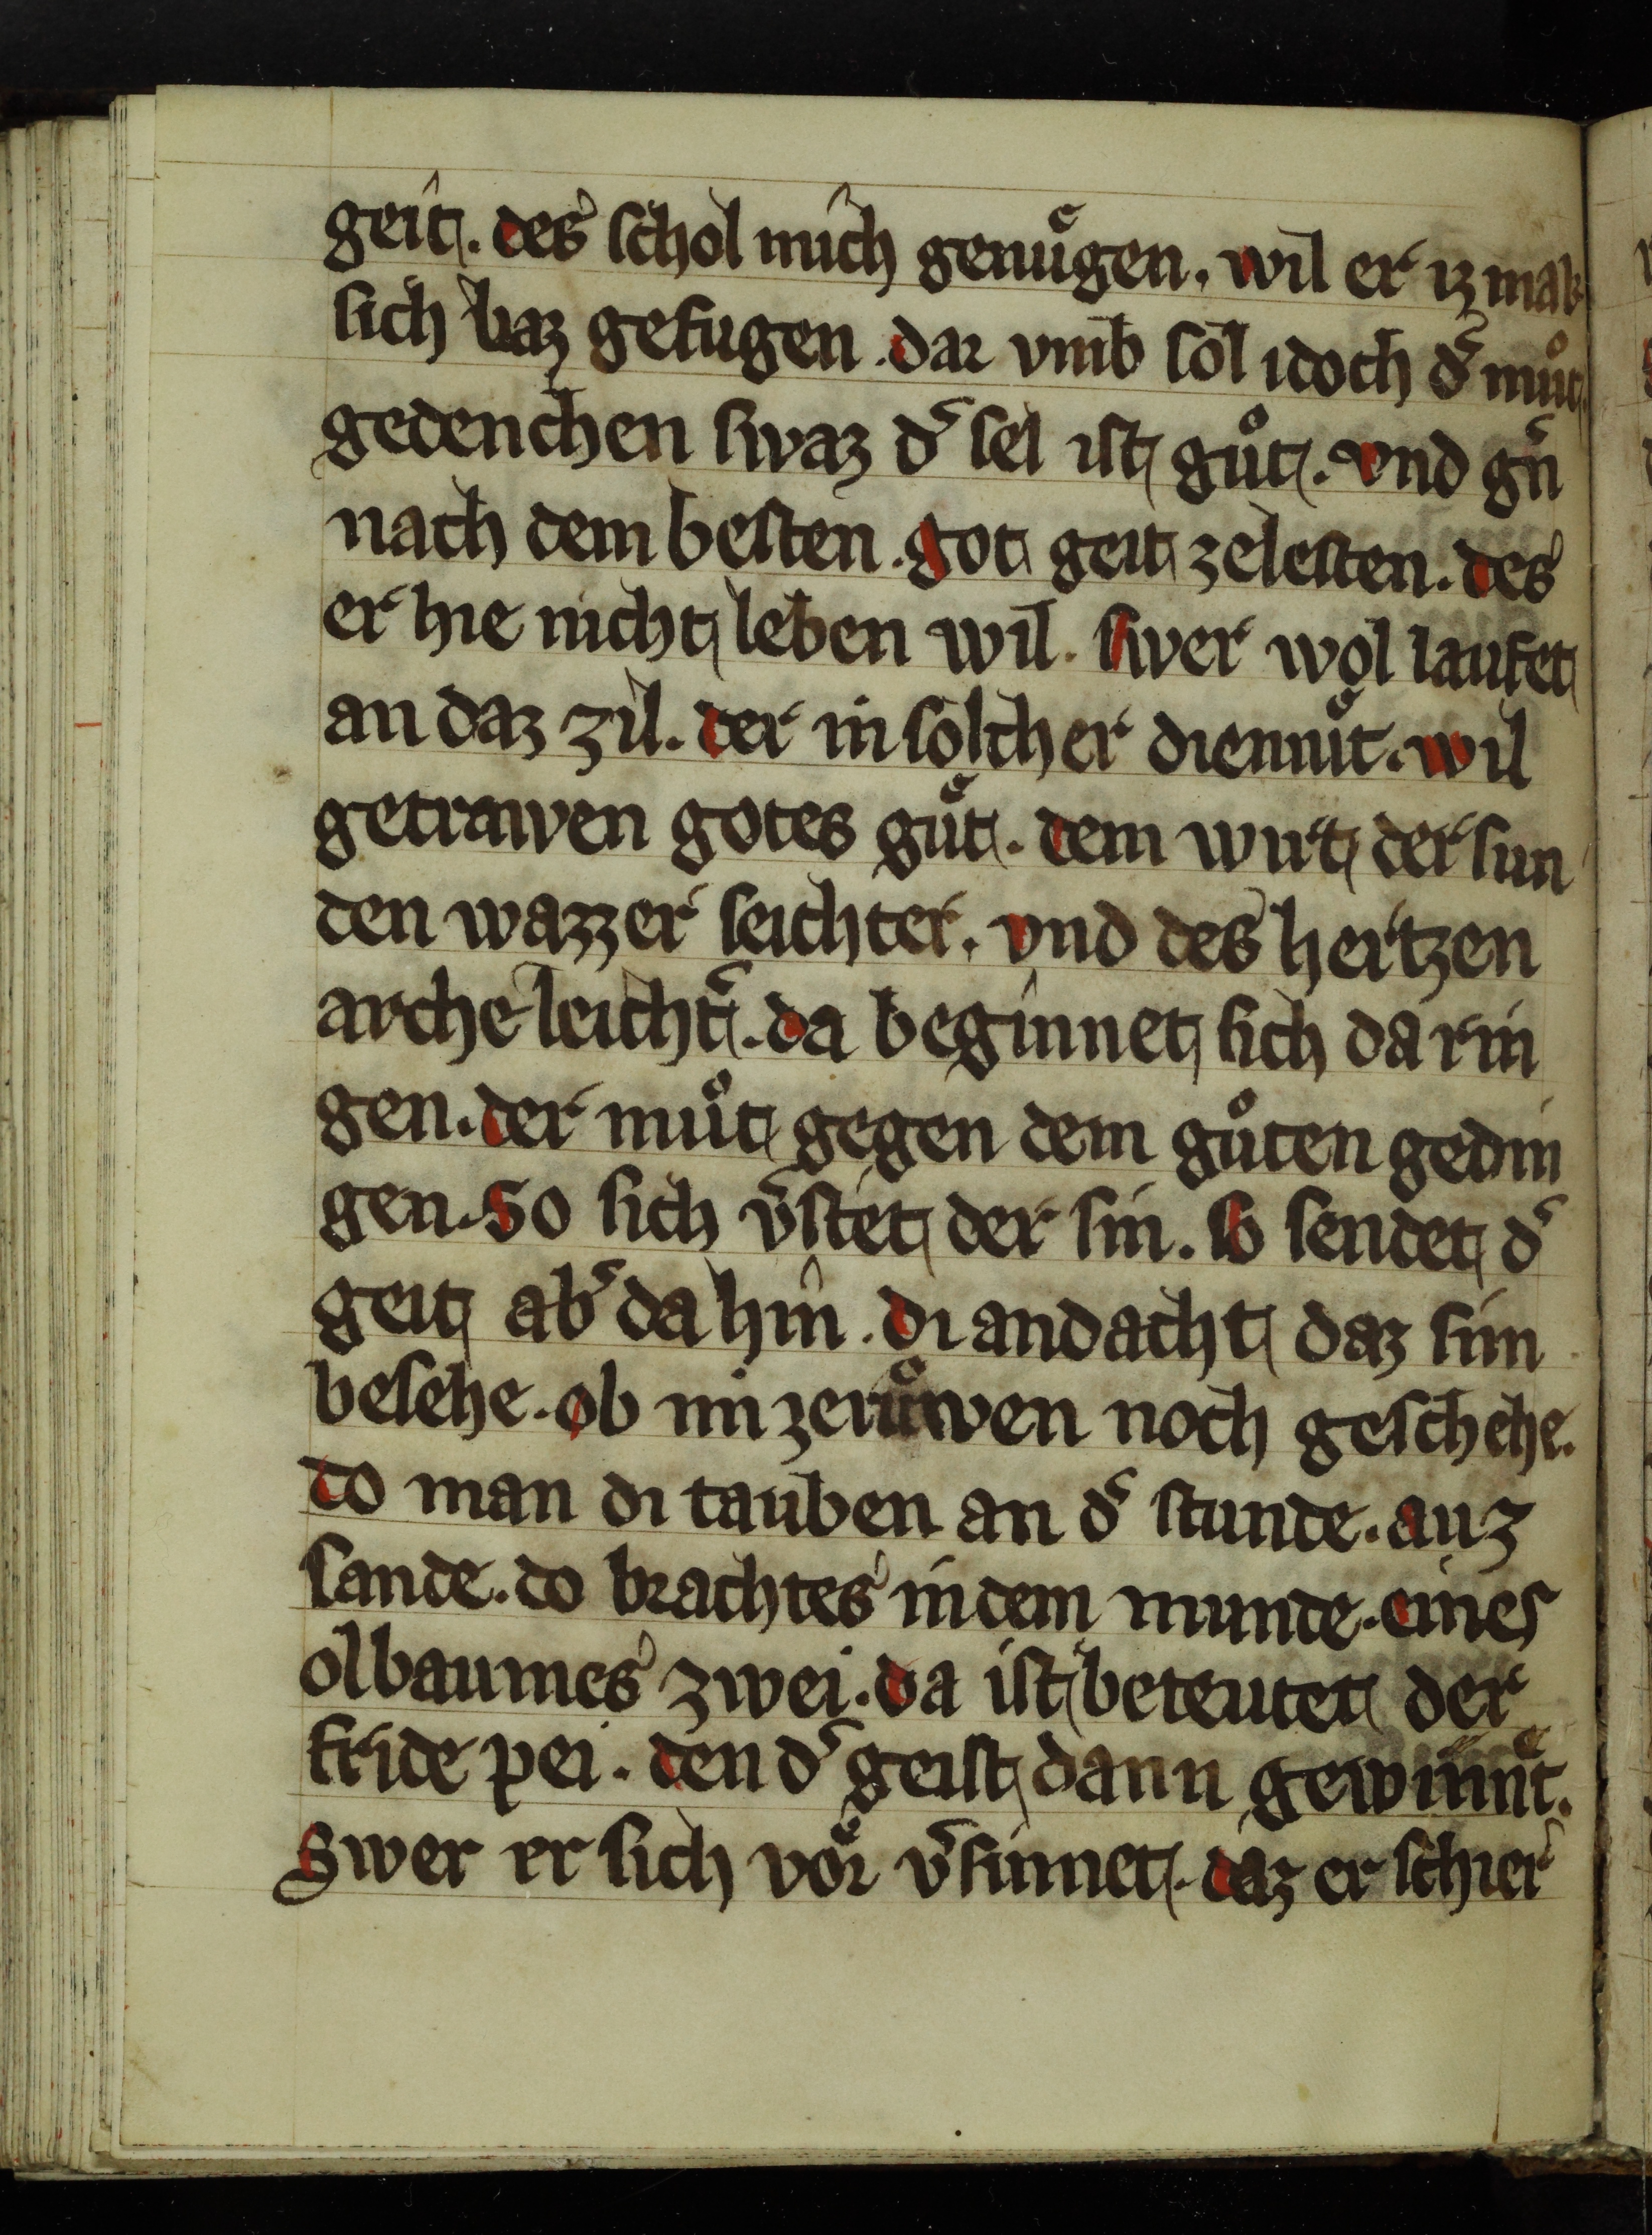 geit. des schol mich genuͤgen. wil er iz mak
sich baz gefugen. dar vmb sol idoch d͛ muͦt.
gedenchen swaz d͛ sel ist guͦt. vnd g͛n
nach dem besten. got geit zelesten. des
er hie nicht leben wil. swer wol laufet
an daz zil. der in solcher diemuͤt. wil
getrawen gotes guͤt. dem wirt der sun
den wazzer seichter. vnd des hertzen
arche leicht͛. da beginnet sich da rin
gen. der muͦt gegen dem guͦten gedin
gen. So sich v͛stet der sin. so sendet d͛
geit ab͛ da hin. di andacht daz sim
besehe. ob im zeruͦwen noch geschehe.
do man di tauben an d͛ stunde. auz
sande. do brachtes in dem munde. eines
olbaumes zwei. da ist beteutet der
fride pei. den d͛ geist dann gewinnͤt.
Swer er sich voͤr v͛sinnet. daz er schier